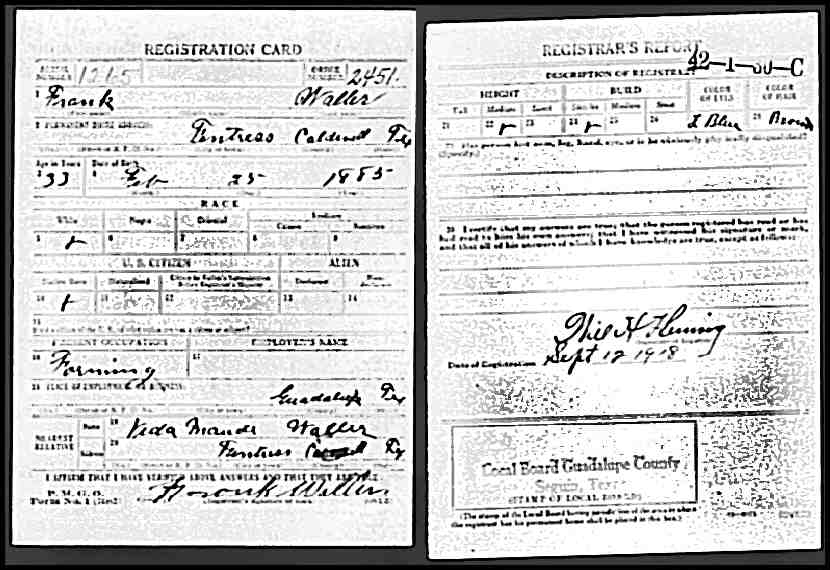 REGISTRATION CARD
SERIAL NUMBER 1265 ORDER NUMBER 2451
1 Frank Waller
2 PERMANENT HOME ADDRESS:
Fentress Caldwell Tex
Age in Years Date of Birth
3 33 4 Feb 25 1885
RACE
White Negro Oriental Indian
Citizen
5 6 7 8 9
U. S. CITIZEN ALIEN
Native Born Naturalized Citizen by Father's Naturalization Before Registrant's Majority Declarant Non-declarant
10 11 12 13 14
15
PRESENT OCCUPATION EMPLOYER'S NAME
16 Farming 17
18 PLACE OF EMPLOYMENT OR BUSINESS:
Guadalupe Tex
NEAREST RELATIVE Name 19 Veda Maude Waller
Address 20 Fentress Caldwell Tx
I AFFIRM THAT I HAVE VERIFIED ABOVE ANSWERS AND THAT THEY ARE TRUE
P. M. G. O.
Form No. 1 (Red)
Frank Waller
REGISTRAR'S REPORT
42-1-30-C
DESCRIPTION OF REGISTRANT
HEIGHT BUILD COLOR OF EYES COLOR OF HAIR
Tall Medium Short Slender Medium Stout
21 22 23 24 25 26 27 L Blue 28 Brown
29 Has person lost arm, leg, hand, eye, or is he obviously physically disqualified?
(Specify.)
30 I certify that my answers are true; that the person registered has read or has
had read to him his own answers; that I have witnessed his signature or mark,
and that all of his answers of which I have knowledge are true, except as follows:
Will H Fleming
Date of Registration Sept 12 1918
Local Board Guadalupe County
Seguin, Tex
(STAMP OF LOCAL BOARD)
(The stamp of the Local Board having jurisdiction of the area in which
the registrant has his permanent home shall be placed in this box.)